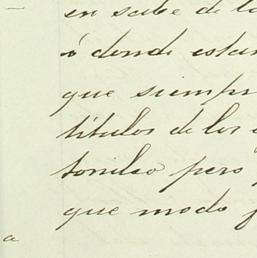 en sabe de l
ó donde estan
que siempr
titulos de los
tonilao pero
que modo
a